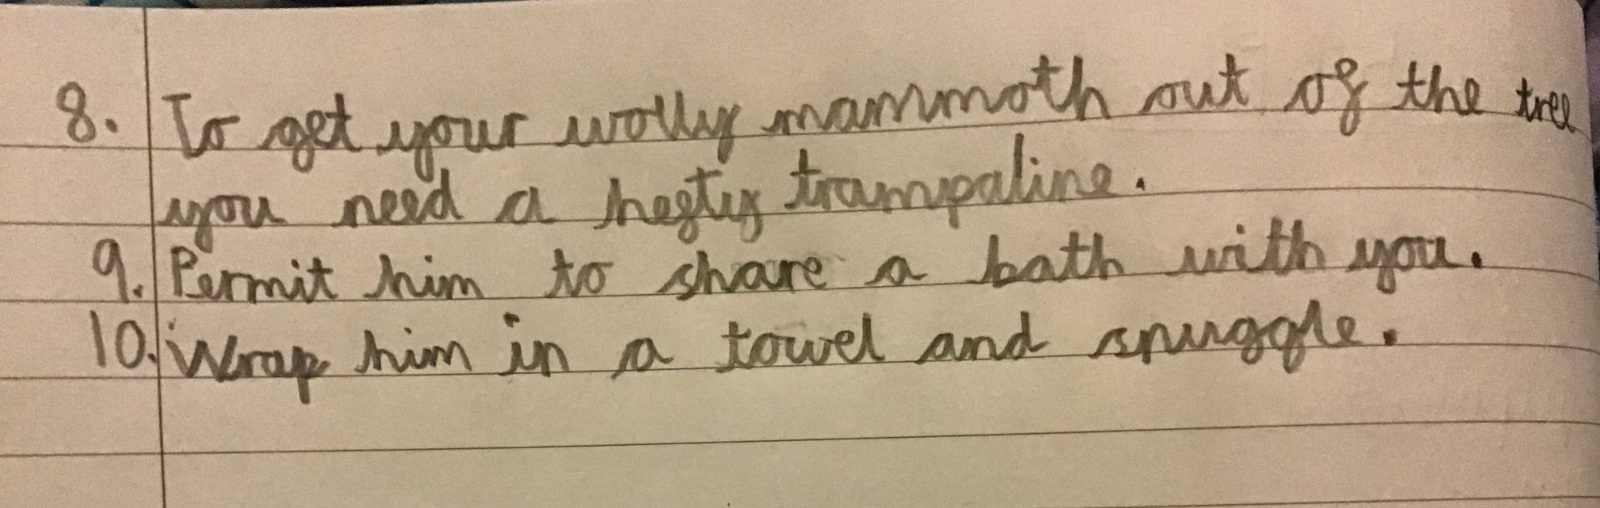 8. To get your wolly mammoth out of the tree
you need a hegty trampaline.
9. Permit him to share a bath with you.
10. Wrap him in a towel and snuggle.